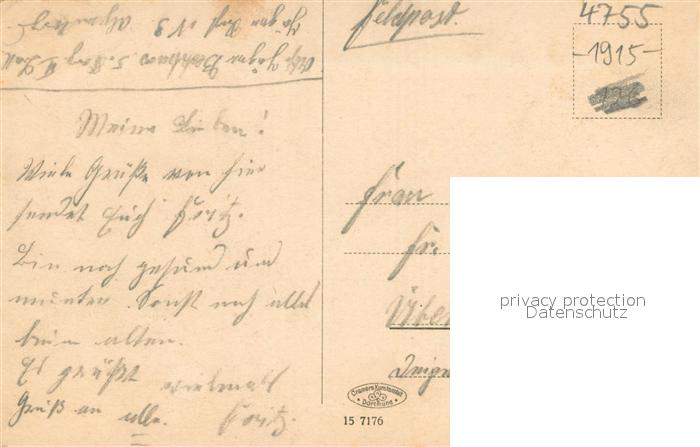 Feldpost.
4755
-1915-
Meine Lieben!
Viele Grüße von hier
sendet Euch Fritz.
Bin noch gesund und
munter. Sonst noch alles
beim alten.
Es grüßt vielmals
Gruß an alle. Fritz.
Frau
Fr.
Über
Cramers Kunstanstalt
Dortmund
15 7176
privacy protection
Datenschutz